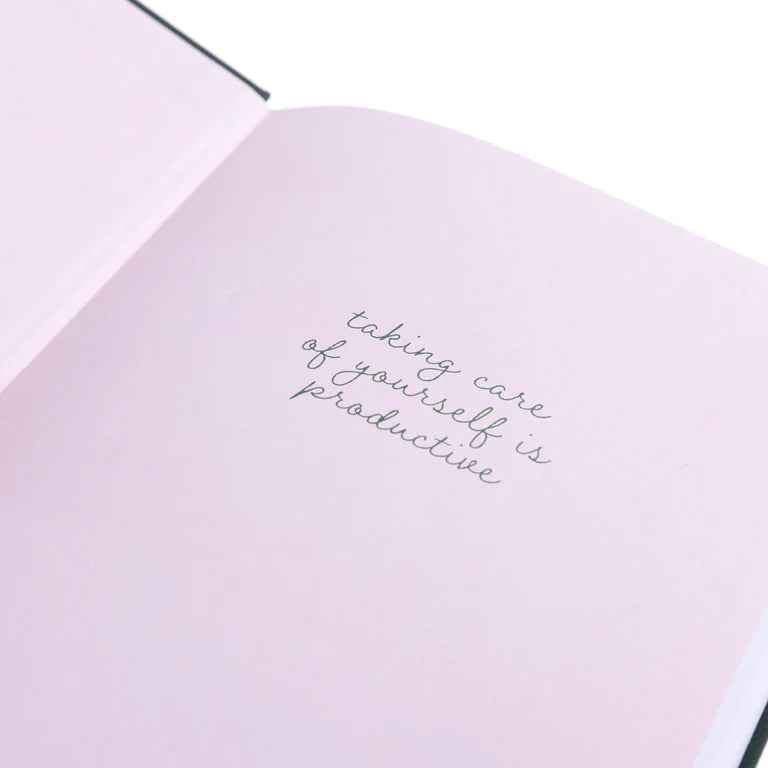 taking care
of yourself is
productive